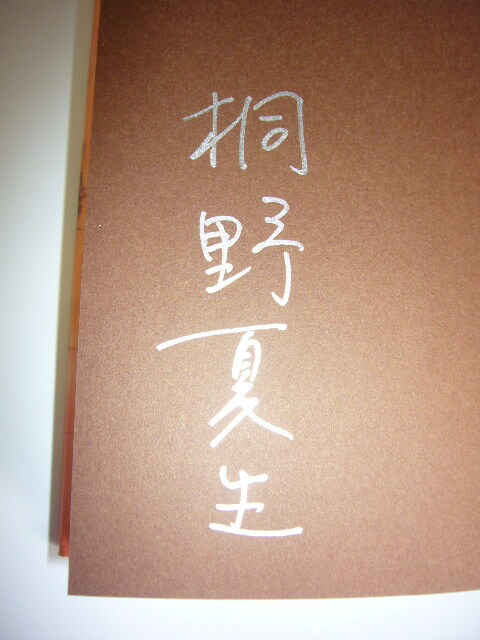 桐野夏生